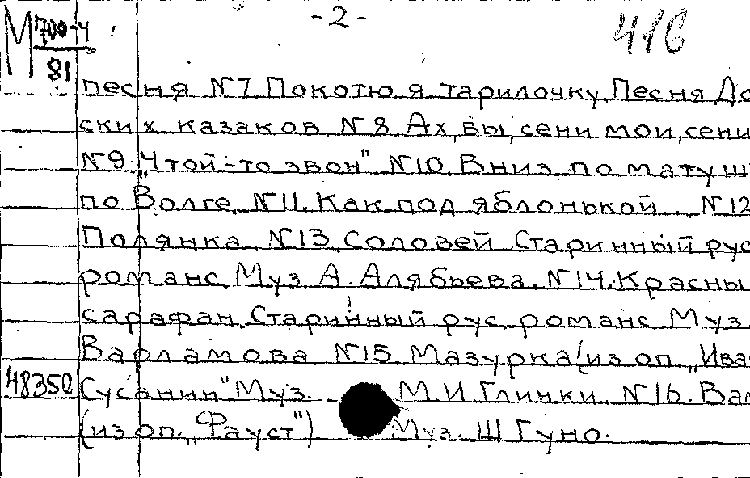 М 700-4
81
- 2 -
416
песня №7 Покотю я тарилочку Песня До
ских казаков №8 Ах, вы, сени мои, сени
№9 „Чтой-то звон" №10 Вниз по матуш
по Волге №11. Как под яблонькой №12
Полянка №13 Соловей Старинный рус
романс Муз А. Алябьева. №14. Красны
сарафан. Старинный рус. романс Муз
Варламова №15 Мазурка (из оп „Ива
48350 Сусанин" Муз. М. И Глинки. №16. Вал
(из оп. „Фауст") Муз. Ш Гуно.